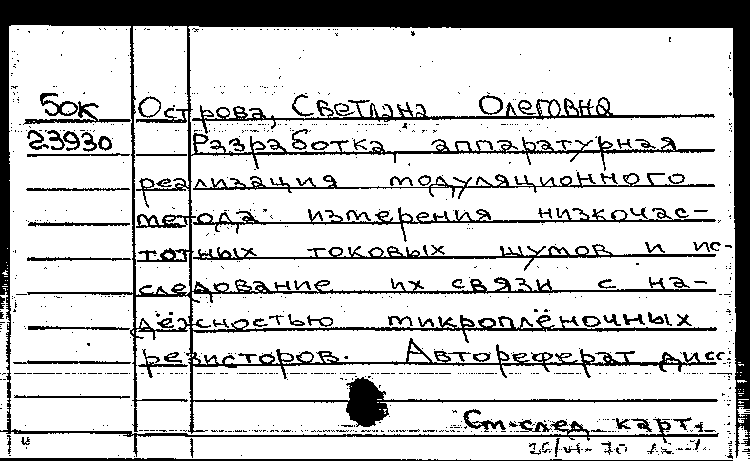 50к Острова, Светлана Олеговна
23930 Разработка, аппаратурная
реализация модуляционного
метода измерения низкочас-
тотных токовых шумов и ис-
следование их связи с на-
дёжностью микроплёночных
резисторов. Автореферат дисс.
См. след. карт.
26/VI-70